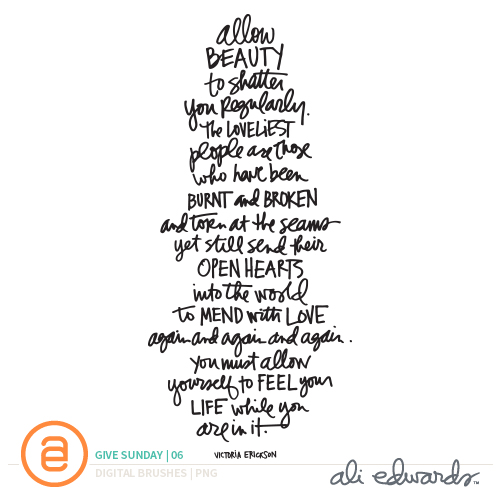 allow
BEAUTY
to shatter
you regularly.
The LOVELIEST
people are those
who have been
BURNT and BROKEN
and torn at the seams
yet still send their
OPEN HEARTS
into the world
to MEND with LOVE
again and again and again.
you must allow
yourself to FEEL your
LIFE while you
are in it.
VICTORIA ERICKSON
ae
GIVE SUNDAY | 06
DIGITAL BRUSHES | PNG
ali edwards™